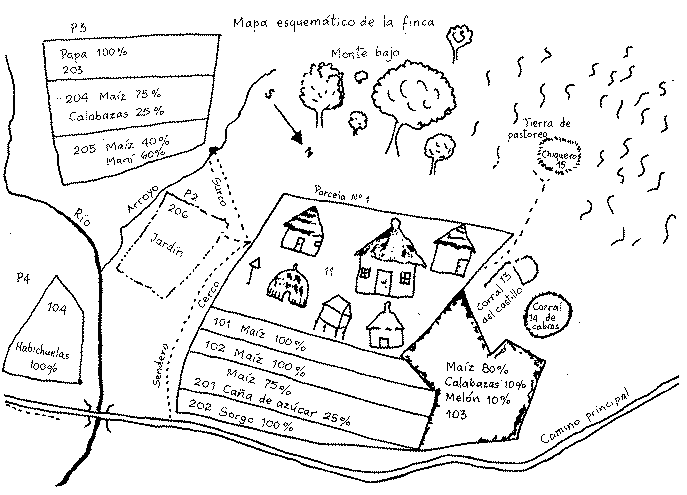 Mapa esquemático de la finca
P3
Papa 100%
203
204 Maíz 75%
Calabazas 25%
205 Maíz 40%
Maní 60%
Monte bajo
S
N
Tierra de
pastoreo
Chiquero
15
Surco
Arroyo
P2
206
Jardín
Río
Parcela Nº 1
11
Cerco
Sendero
Corral 13
del castillo
Corral
14 de
cabras
P4
104
Habichuelas
100%
101 Maíz 100%
102 Maíz 100%
Maíz 75%
201 Caña de azúcar 25%
202 Sorgo 100%
Maíz 80%
Calabazas 10%
Melón 10%
103
Camino principal